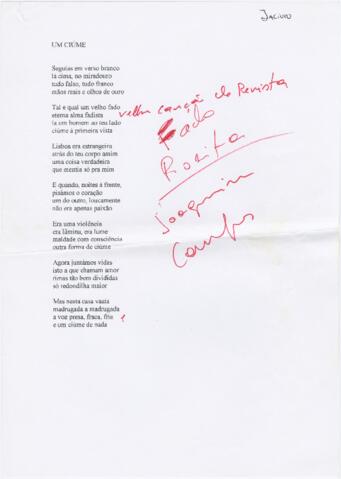 JACINTO
UM CIÚME
Seguias em verso branco
lá cima, no miradouro
tudo falso, tudo franco
mãos reais e olhos de ouro
Tal e qual um velho fado
eterna alma fadista
ia um homem ao teu lado
ciúme à primeira vista
Lisboa era estrangeira
atrás do teu corpo assim
uma coisa verdadeira
que mentia só pra mim
E quando, noites à frente,
pisámos o coração
um do outro, loucamente
não era apenas paixão
Era uma violência
era lâmina, era lume
maldade com consciência
outra forma de ciúme
Agora juntámos vidas
isto a que chamam amor
rimas tão bem divididas
só redondilha maior
Mas nesta casa vazia
madrugada a madrugada
a voz presa, fraca, fria
e um ciúme de nada
velha canção de Revista
Fado
Rosita
Joaquim
Campos